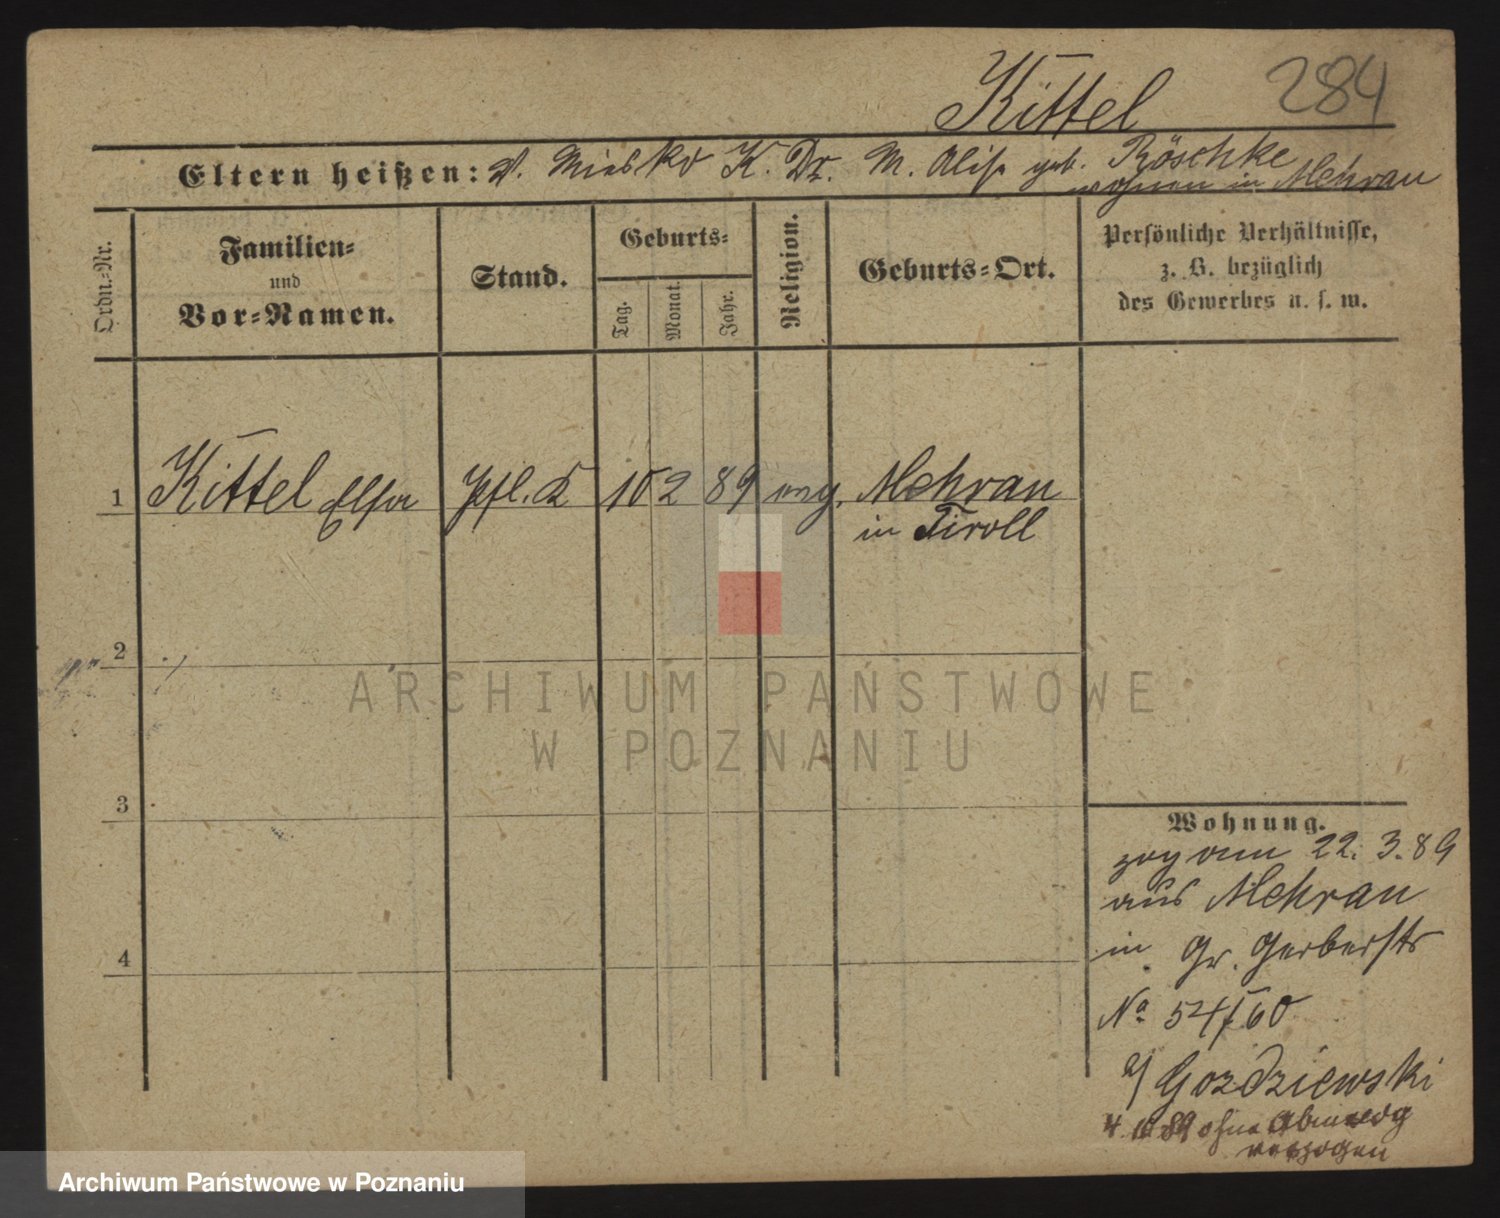 Kittel 284
Eltern heißen: V. Miesko K. Dr. M. Alise geb. Röschke
wohnen in Mehran
Ordn.-Nr.
Familien-
und
Vor-Namen.
Stand.
Geburts-
Tag.
Monat.
Jahr.
Religion.
Geburts-Ort.
Persönliche Verhältnisse,
z. B. bezüglich
des Gewerbes u. s. w.
1 Kittel Elsa Pfl. K 10 2 89 evg. Mehran
in Tiroll
2
3
4
Wohnung.
zog am 22. 3. 89
aus Mehran
in Gr. Gerberstr
No 54/60
b/ Gozdziewski
4. 10 89 ohne Abmeldg
verzogen
ARCHIWUM PAŃSTWOWE
W POZNANIU
Archiwum Państwowe w Poznaniu